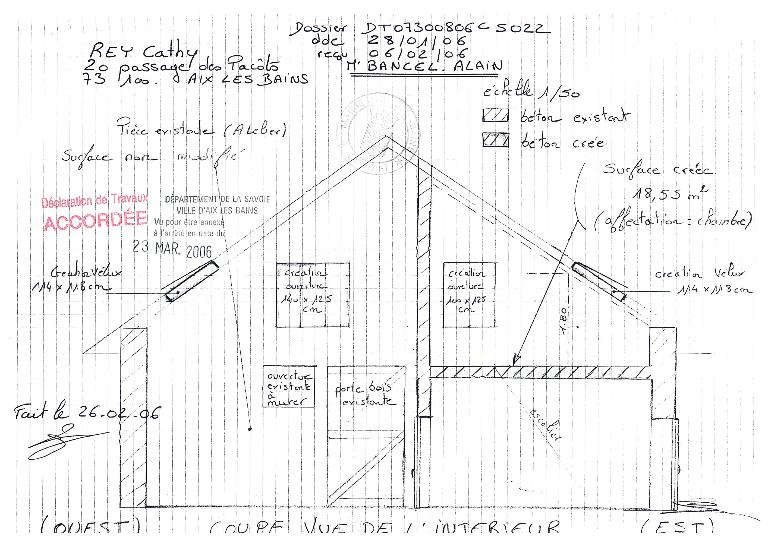 Dossier DT07300806C5022
dde 28/01/06
reçu 06/02/06
Mr BANCEL. ALAIN
REY Cathy
20 passage des Pacôts
73 100. AIX LES BAINS
échelle 1/50
béton existant
béton crée
Pièce existante (Atelier)
Surface non modifié
Surface créée
18,55 m²
(affectation = chambre)
Déclaration de Travaux
ACCORDÉE
DÉPARTEMENT DE LA SAVOIE
VILLE D'AIX LES BAINS
Vu pour être annexé
à l'arrêté en date du
23 MAR. 2006
Création Vélux
114 x 118 cm
création
ouverture
140 x 125
cm
création
ouverture
100 x 125
cm
création Velux
114 x 118 cm
1.80
ouverture
existante
à
murer
porte bois
existante
escalier
Fait le 26.02.06
(OUEST) COUPE VUE DE L'INTERIEUR (EST)